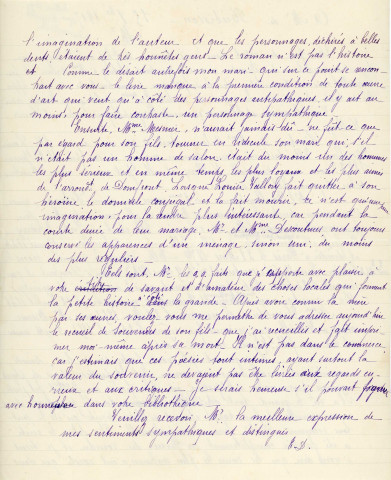 l'imagination de l'auteur et que les personnages, déchirés à belles
dents étaient de très honnêtes gens - Le roman n'est pas l'histoire
et Comme le disait autrefois mon mari - qui sur ce point se rencon-
trait avec vous - le livre manque à la première condition de toute œuvre
d'art qui veut qu'à côté des personnages antipathiques, il y ait au
moins, pour faire contraste, un personnage sympathique!
Ensuite, Mme Mesner, n'aurait jamais dû - ne fût-ce que
par égard pour son fils, tourner en ridicule son mari qui, s'il
n'était pas un homme de salon était du moins un des hommes
les plus sérieux et en même temps les plus loyaux et les plus aimés
de l'arrondt de Domfront. Lorsque Louise Vallory fait quitter à son
héroïne le domicile conjugal et la fait mourir, ce n'est qu'une
imagination, pour la rendre plus intéressante, car pendant la
courte durée de leur mariage, Mr et Mme ont toujours
conservé les apparences d'un ménage, sinon uni, du moins
des plus réguliers -
Tels sont, Mr les faits que j'apporte avec plaisir à
votre de savant et d'amateur des choses locales qui forment
la petite histoire dans la grande - Après avoir connu la mère
par ses œuvres, voulez vous me permettre de vous adresser aujourd'hui
le recueil de Souvenirs de son fils - que j'ai recueillis et fait impri-
mer moi-même après sa mort. Il n'est pas dans le commerce
car j'estimais que ces poésies sont intimes, ayant surtout la
valeur du souvenir, ne devaient pas être livrées aux regards cu-
rieux et aux critiques - Je serais heureuse s'il pouvait figurer
avec honneur dans votre bibliothèque
Veuillez recevoir, Mr, la meilleure expression de
mes sentiments sympathiques et distingués